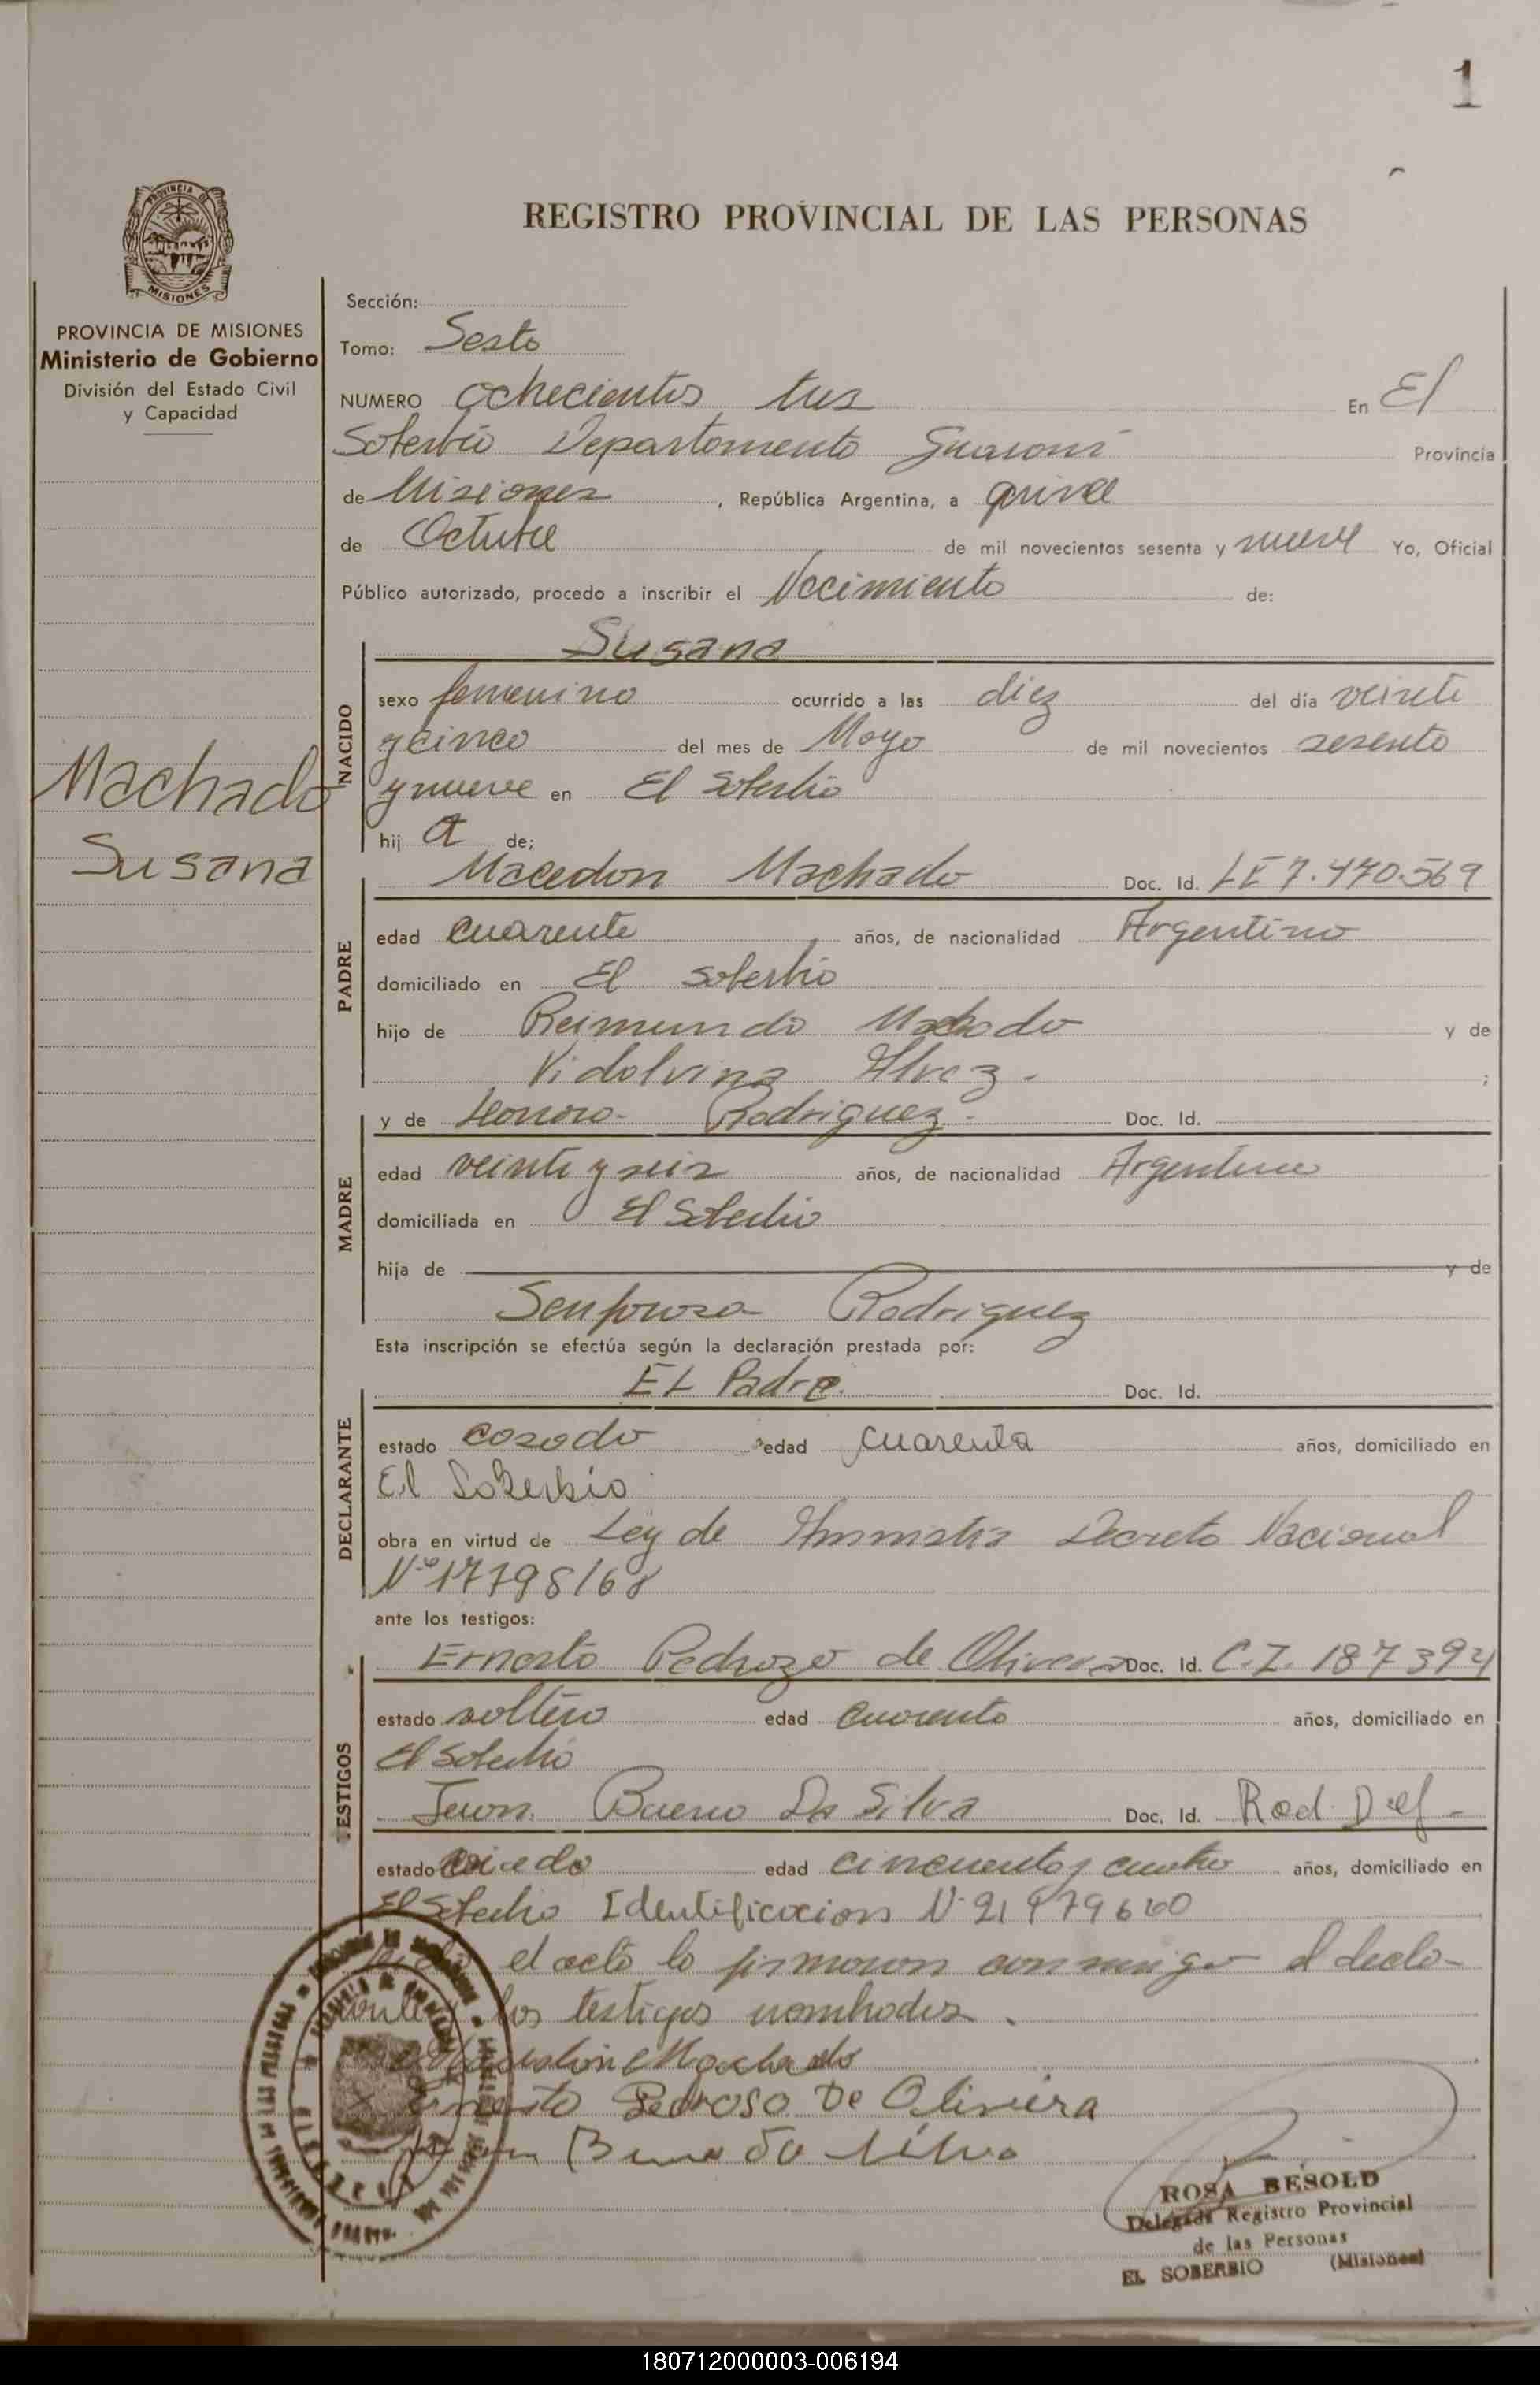 1
PROVINCIA DE
MISIONES
PROVINCIA DE MISIONES
Ministerio de Gobierno
División del Estado Civil
y Capacidad
Machado
Susana
REGISTRO PROVINCIAL DE LAS PERSONAS
Sección:
Tomo: Sexto
NUMERO Ochocientos tres En El
Soberbio Departamento Guaraní Provincia
de Misiones, República Argentina, a quince
de Octubre de mil novecientos sesenta y nueve Yo, Oficial
Público autorizado, procedo a inscribir el Nacimiento de:
Susana
NACIDO
sexo femenino ocurrido a las diez del día veinte
y cinco del mes de Mayo de mil novecientos sesenta
y nueve en El Soberbio
hij a de;
PADRE
Macedon Machado Doc. Id. LE 7.470.569
edad cuarenta años, de nacionalidad Argentino
domiciliado en El Soberbio
hijo de Reimundo Machado y de
Vidolvina Alvez - ;
MADRE
y de Leonora Rodriguez - Doc. Id.
edad veinte y seis años, de nacionalidad Argentina
domiciliada en El Soberbio
hija de y de
Senforosa Rodriguez
Esta inscripción se efectúa según la declaración prestada por:
DECLARANTE
EL Padre. Doc. Id.
estado casado edad cuarenta años, domiciliado en
El Soberbio
obra en virtud de Ley de Amnistia Decreto Nacional
Nº 17798/68
ante los testigos:
TESTIGOS
Ernesto Pedrozo de Olivera Doc. Id. C.I. 187394
estado soltero edad cuarenta años, domiciliado en
El Soberbio
Juan Bueno Da Silva Doc. Id. Rad. Def -
estado edad cincuenta y cuatro años, domiciliado en
El Soberbio Identificacion
el acto lo firmaron conmigo el decla-
rante y los testigos nombrados.
Machado
Ernesto Pedroso De Oliveira
Juan Bueno da Silva
ROSA BESOLD
Delegada Registro Provincial
de las Personas
EL SOBERBIO (Misiones)
180712000003-006194